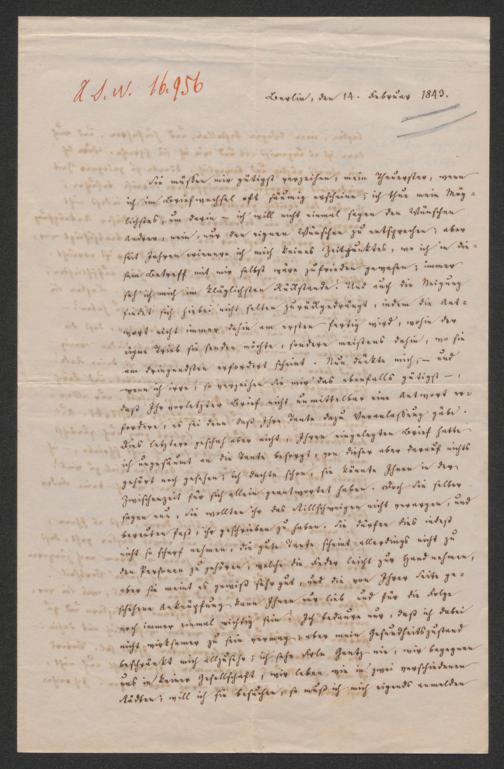 A.S.N. 16.956
Berlin, den 14. Februar 1843.
Sie müssen mir gütigst verzeihen, mein Theuerster, wenn
ich im Briefwechsel oft säumig erscheine; ich thue mein Mög-
lichstes, um darin – ich will nicht einmal sagen den Wünschen
Andrer, nein, nur den eignen Wünschen zu entsprechen; aber
seit Jahren erinnere ich mich keines Zeitpunktes, wo ich in die-
sem Betreff mit mir selbst wäre zufrieden gewesen; immer
seh ich mich im kläglichsten Rückstande! Und auch die Neigung
findet sich hiebei nicht selten zurückgedrängt, indem die Ant-
wort nicht immer dahin am ersten fertig wird, wohin der
eigne Trieb sie senden möchte, sondern meistens dahin, wo sie
am dringendsten erfordert scheint. Nun däuchte mich, – und
wenn ich irre, so verzeihen Sie mir das ebenfalls gütigst –,
daß Ihr vorletzter Brief nicht unmittelbar eine Antwort er-
fordere, es sei denn daß Ihre Tante dazu Veranlassung gäbe.
Dies letztere geschah aber nicht, Ihren eingelegten Brief hatte
ich ungesäumt an die Tante besorgt, von dieser aber darauf nichts
gehört noch gesehen; ich dachte schon, sie könnte Ihnen in der
Zwischenzeit für sich allein geantwortet haben. Doch Sie selber
sagen nun, Sie wollten ihr das Stillschweigen nicht verargen, und
bereuten fast, ihr geschrieben zu haben. Sie dürfen dies indeß
nicht so scharf nehmen, die gute Tante scheint allerdings nicht zu
den Personen zu gehören, welche die Feder leicht zur Hand nehmen,
aber sie meint es gewiß sehr gut, und die von Ihrer Seite ge-
schehene Anknüpfung kann Ihnen nur lieb und für die Folge
noch immer einmal wichtig sein! Ich bedaure nur, daß ich dabei
nicht wirksamer zu sein vermag, aber mein Gesundheitszustand
beschränkt mich allzusehr; ich sehe Frln Gentz nie, wir begegnen
uns in keiner Gesellschaft, wir leben wie in zwei verschiedenen
Städten; will ich sie besuchen, so muß ich mich eigends anmelden